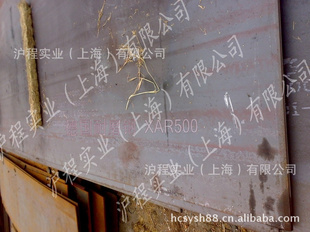 沪程实业（上海）有限公司
沪程实业（上海）有限公司
XAR500
沪程实业（上海）有限公司
沪程实业（上海）有限公司
hcsysh88.cn.alibaba.com